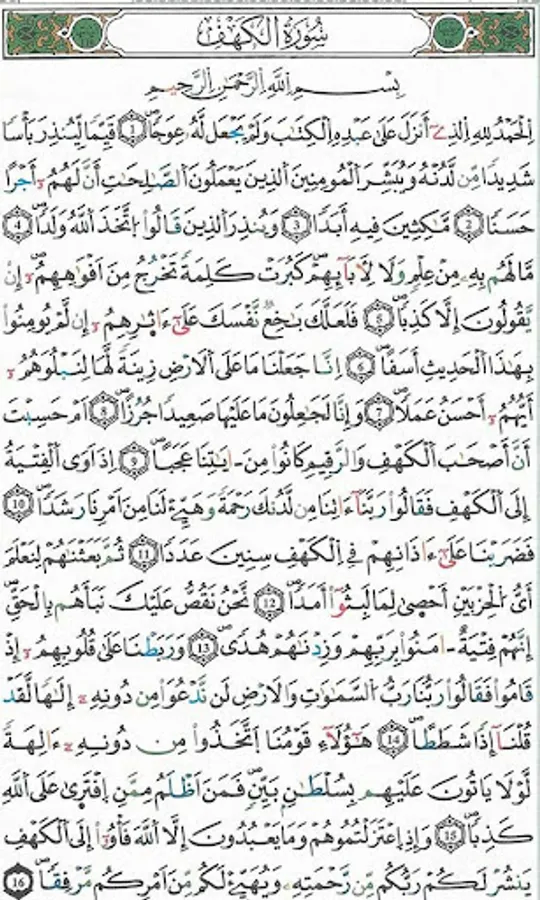 سُورَةُ الْكَهْفِ
بِسْمِ اللَّهِ الرَّحْمَٰنِ الرَّحِيمِ
اِ۬لْحَمْدُ لِلهِ اِ۬لذِےٓ أَنزَلَ عَلَىٰ عَبْدِهِ اِ۬لْكِتَٰبَ وَلَمْ يَجْعَل لَّهُۥ عِوَجاًۖ 1 قَيِّماٗ لِّيُنذِرَ بَأْساٗ
شَدِيداٗ مِّن لَّدُنْهُ وَيُبَشِّرَ اَ۬لْمُومِنِينَ اَ۬لذِينَ يَعْمَلُونَ اَ۬لصَّٰلِحَٰتِ أَنَّ لَهُمُۥٓ أَجْراً
حَسَناٗ 2 مَّٰكِثِينَ فِيهِ أَبَداٗ 3 وَيُنذِرَ اَ۬لذِينَ قَالُواْ اُ۪تَّخَذَ اَ۬للَّهُ وَلَداٗۖ 4
مَّا لَهُم بِهِۦ مِنْ عِلْمٖ وَلَا لِأٓبَآئِهِمْۖ كَبُرَتْ كَلِمَةٗ تَخْرُجُ مِنَ اَفْوَٰهِهِمُۥٓۖ إِنْ
يَّقُولُونَ إِلَّا كَذِباٗۖ 5 فَلَعَلَّكَ بَٰخِعٞ نَّفْسَكَ عَلَىٰٓ ءَاثٰ۪رِهِمُۥٓ إِن لَّمْ يُومِنُواْ
بِهَٰذَا اَ۬لْحَدِيثِ أَسَفاًۖ 6 اِنَّا جَعَلْنَا مَا عَلَى اَ۬لَارْضِ زِينَةٗ لَّهَا لِنَبْلُوَهُمُۥٓ
أَيُّهُمُۥٓ أَحْسَنُ عَمَلاٗۖ 7 وَإِنَّا لَجَٰعِلُونَ مَا عَلَيْهَا صَعِيداٗ جُرُزاًۖ 8 اَمْ حَسِبْتَ
أَنَّ أَصْحَٰبَ اَ۬لْكَهْفِ وَالرَّقِيمِ كَانُواْ مِنَ اٰيَٰتِنَا عَجَباًۖ 9 إِذَ اَوَى اَ۬لْفِتْيَةُ
إِلَى اَ۬لْكَهْفِ فَقَالُواْ رَبَّنَآ ءَاتِنَا مِن لَّدُنكَ رَحْمَةٗ وَهَيِّۓْ لَنَا مِنَ اَمْرِنَا رَشَداٗۖ 10
فَضَرَبْنَا عَلَىٰٓ ءَاذَانِهِمْ فِے اِ۬لْكَهْفِ سِنِينَ عَدَداٗۖ 11 ثُمَّ بَعَثْنَٰهُمْ لِنَعْلَمَ
أَيُّ اُ۬لْحِزْبَيْنِ أَحْص۪ىٰ لِمَا لَبِثُوٓاْ أَمَداٗۖ 12 نَّحْنُ نَقُصُّ عَلَيْكَ نَبَأَهُم بِالْحَقِّۖ
إِنَّهُمْ فِتْيَةٌ اٰمَنُواْ بِرَبِّهِمْ وَزِدْنَٰهُمْ هُدىٗۖ 13 وَرَبَطْنَا عَلَىٰ قُلُوبِهِمُۥٓ إِذْ
قَامُواْ فَقَالُواْ رَبُّنَا رَبُّ اُ۬لسَّمَٰوَٰتِ وَالَارْضِ لَن نَّدْعُوَاْ مِن دُونِهِۦٓ إِلَٰهاٗ لَّقَد
قُلْنَآ إِذاٗ شَطَطاًۖ 14 هَٰٓؤُلَآءِ قَوْمُنَا اَ۪تَّخَذُواْ مِن دُونِهِۦٓ ءَالِهَةٗ
لَّوْلَا يَاتُونَ عَلَيْهِم بِسُلْطَٰنِۢ بَيِّنٖۖ فَمَنَ اَظْلَمُ مِمَّنِ اِ۪فْتَر۪ىٰ عَلَى اَ۬للَّهِ
كَذِباٗۖ 15 وَإِذِ اِ۪عْتَزَلْتُمُوهُمْ وَمَا يَعْبُدُونَ إِلَّا اَ۬للَّهَ فَأْوُۥٓاْ إِلَى اَ۬لْكَهْفِ
يَنشُرْ لَكُمْ رَبُّكُم مِّن رَّحْمَتِهِۦ وَيُهَيِّۓْ لَكُم مِّنَ اَمْرِكُم مَّرْفِقاٗۖ 16